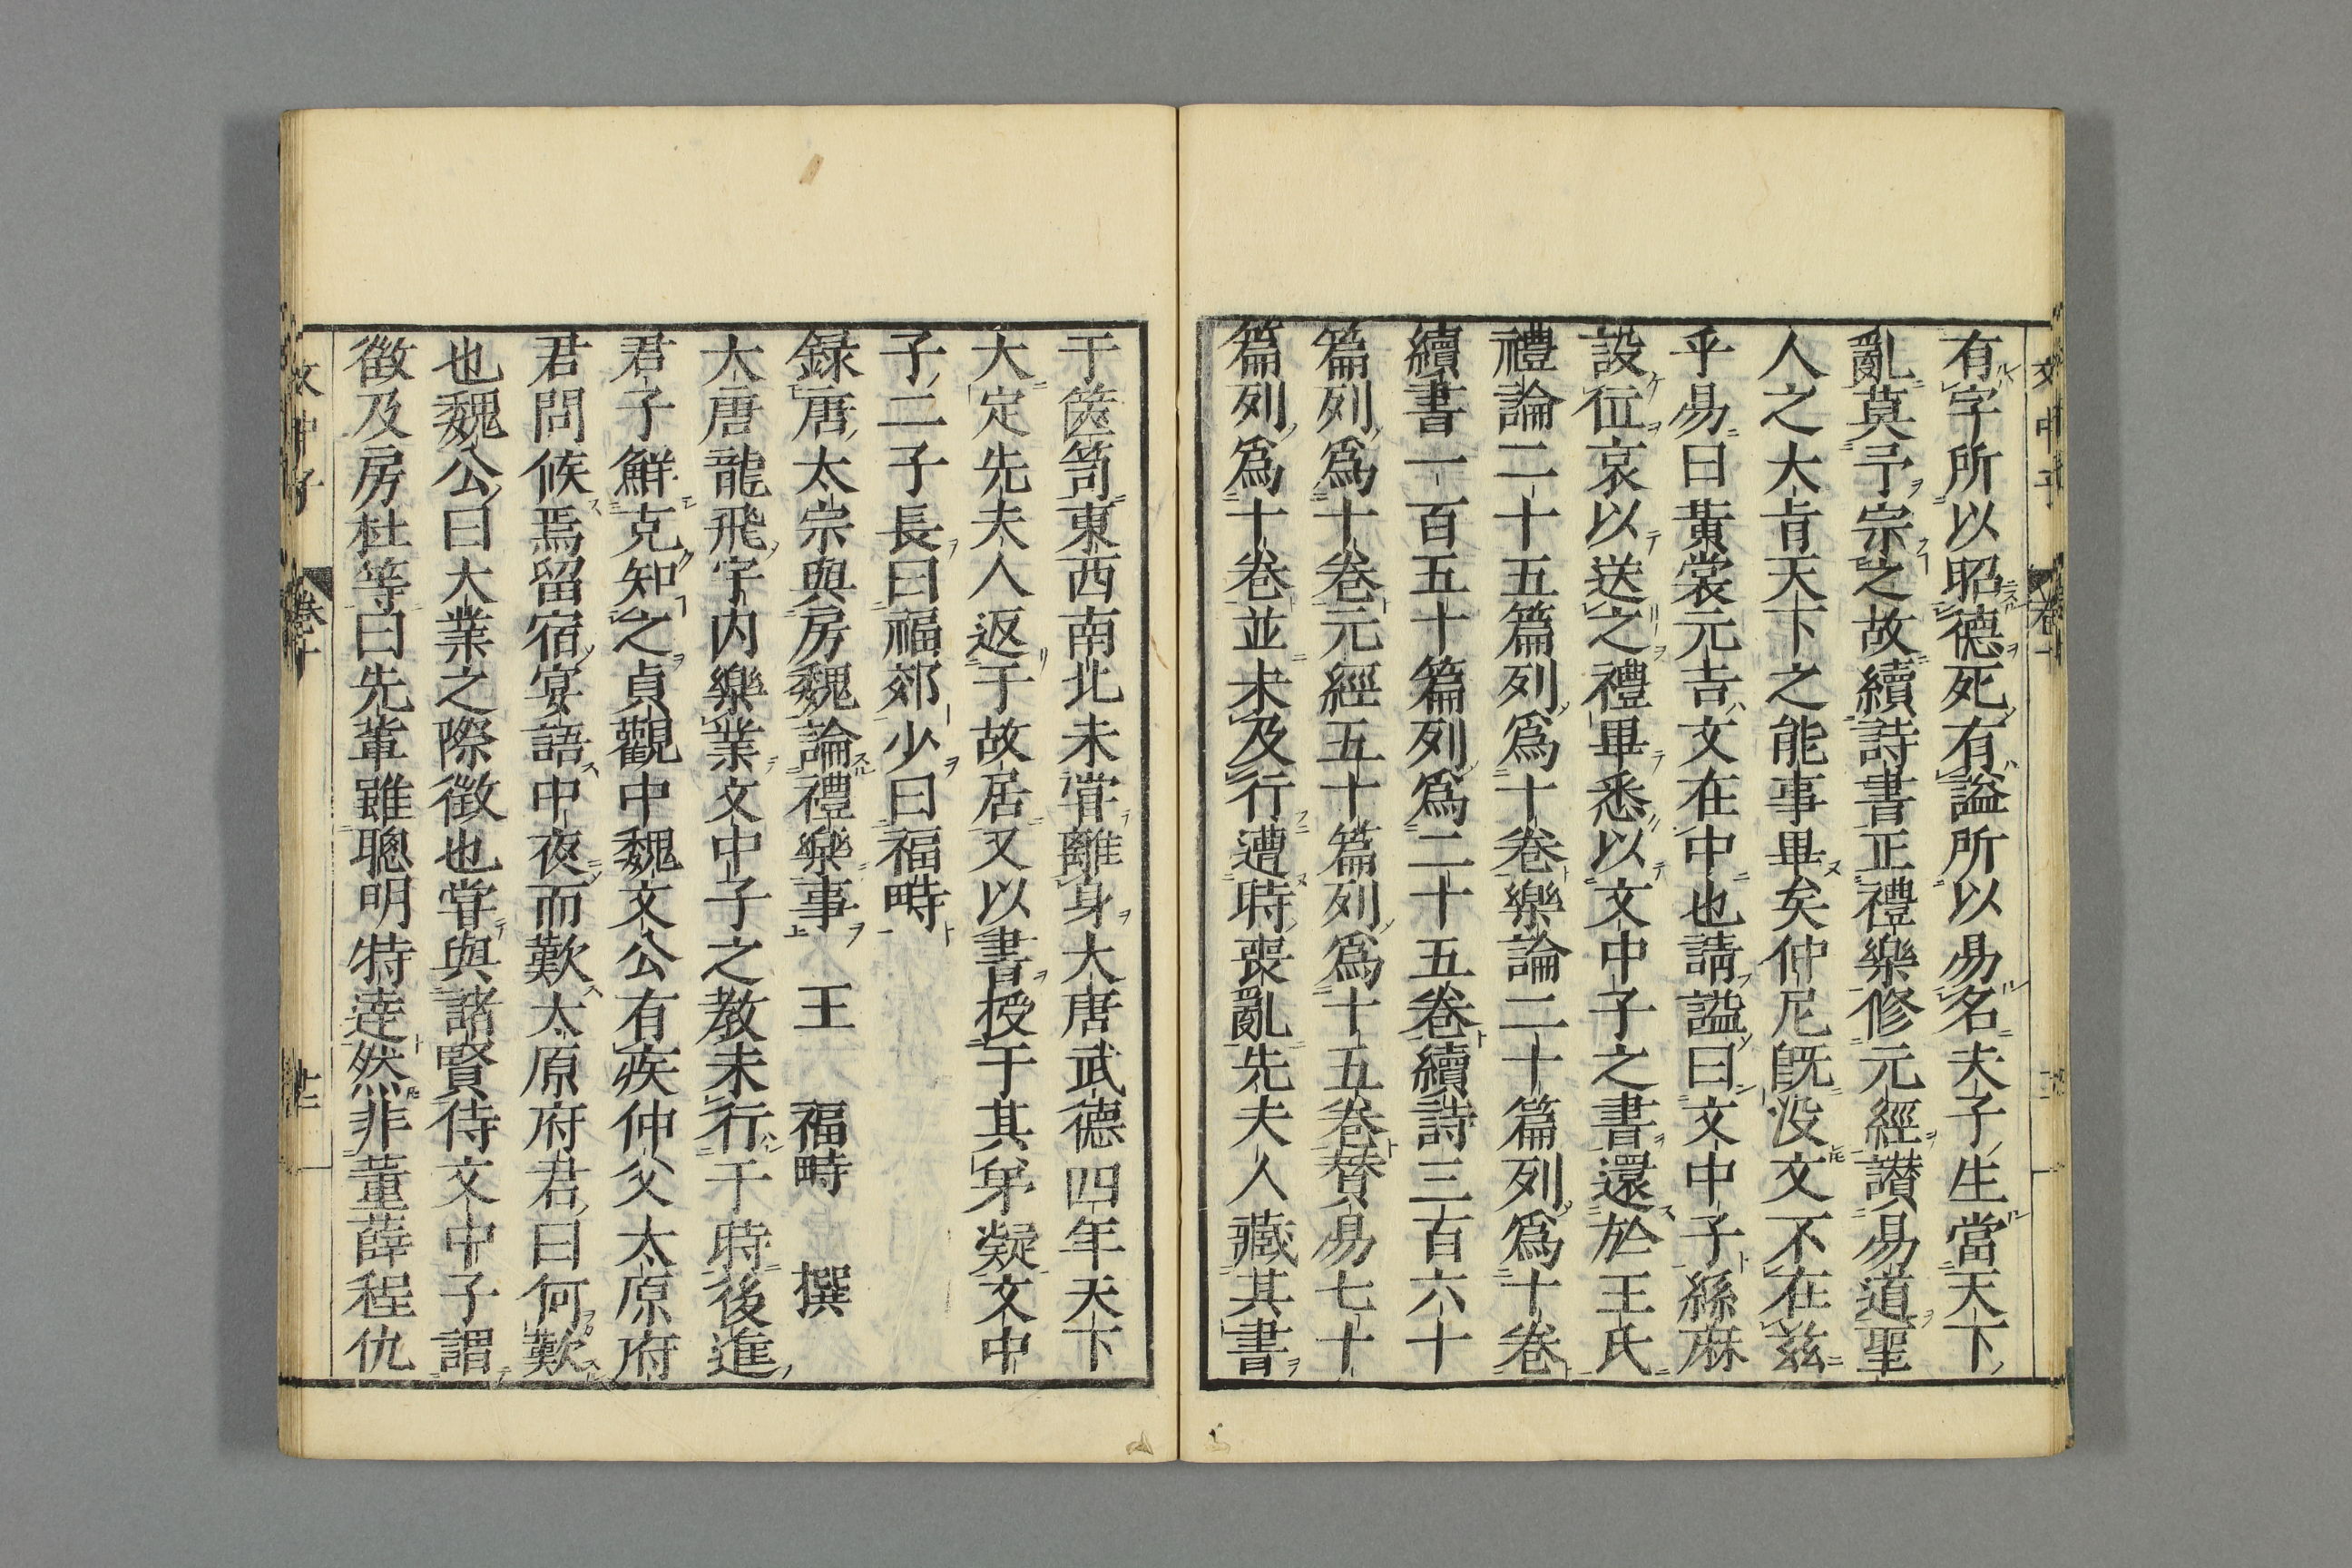 有字所以昭德死有謚所以易名夫子生當天下
亂莫予宗之故續詩書正禮樂修元經讃易道聖
人之大肯天下之能事畢矣仲尼旣没文不在茲
乎易曰黃裳元吉文在中也請謚曰文中子絲麻
設位哀以送之禮畢悉以文中子之書還於王氏
禮論二十五篇列爲十卷樂論二十篇列爲十卷
續書一百五十篇列爲二十五卷續詩三百六十
篇列爲十卷元經五十篇列爲十五卷賛易七十
篇列爲十卷並未及行遭時喪亂先夫人藏其書
于篋笥東西南北未甞離身大唐武德四年天下
大定先夫人返于故居又以書授于其弟凝文中
子二子長曰福郊少曰福畤
録唐太宗與房魏論禮樂事 王 福畤 撰
大唐龍飛宇内樂業文中子之教未行于時後進
君子鮮克知之貞觀中魏文公有疾仲父太原府
君問候焉留宿宴語中夜而歎太原府君曰何歎
也魏公曰大業之際徵也甞與諸賢侍文中子謂
徵及房杜等曰先輩雖聰明特達然非董薛程仇
文中子 卷十 廿二